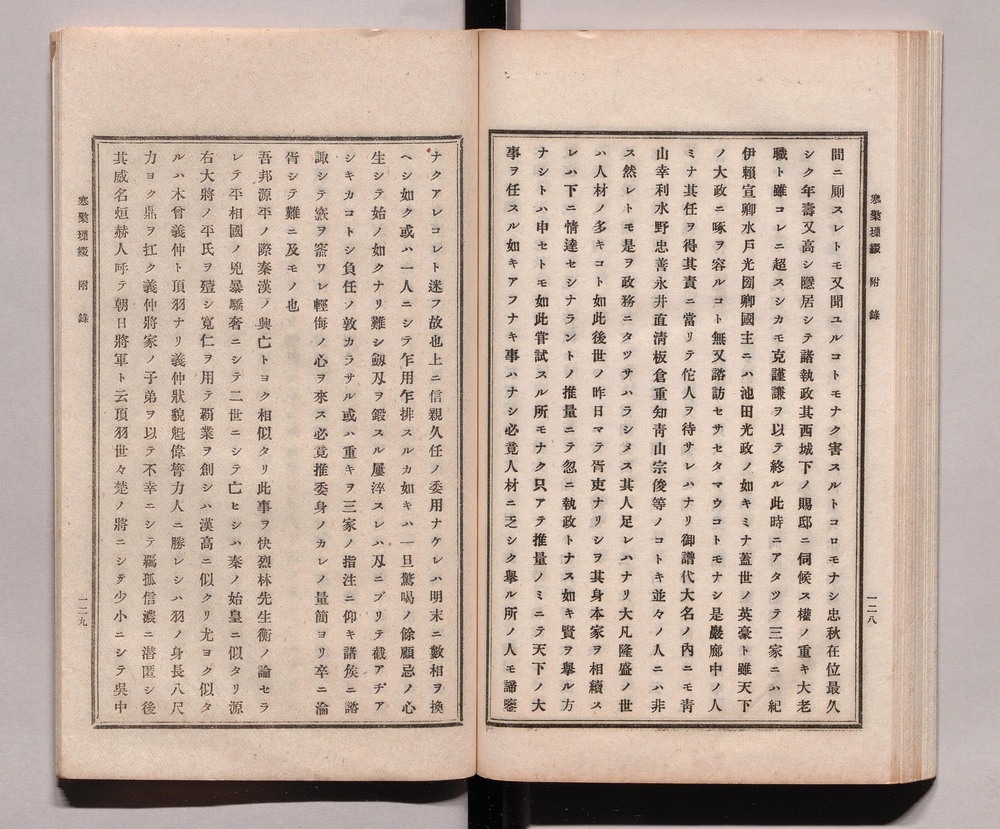 寒檠璅綴　附　錄
一二八
間ニ厠スレトモ又聞ユルコトモナク害スルトコロモナシ忠秋在位最久
シク年壽又高シ隱居シテ諸執政其西城下ノ賜邸ニ伺候ス權ノ重キ大老
職ト雖コレニ超スシカモ克謹謙ヲ以テ終ル此時ニアタツテ三家ニハ紀
伊賴宣卿水戶光圀卿國主ニハ池田光政ノ如キミナ蓋世ノ英豪ト雖天下
ノ大政ニ啄ヲ容ルコト無又諮訪セサセタマウコトモナシ是巖廊中ノ人
ミナ其任ヲ得其責ニ當リテ佗人ヲ待サレハナリ御譜代大名ノ內ニモ靑
山幸利水野忠善永井直淸板倉重知靑山宗俊等ノコトキ並々ノ人ニハ非
ス然レトモ是ヲ政務ニタツサハラシメス其人足レハナリ大凡隆盛ノ世
ハ人材ノ多キコト如此後世ノ昨日マテ胥吏ナリシヲ其身本家ヲ相續ス
レハ下ニ情達セシナラントノ推量ニテ忽ニ執政トナス如キ賢ヲ擧ル方
ナシトハ申セトモ如此嘗試スル所モナク只アテ推量ノミニテ天下ノ大
事ヲ任スル如キアフナキ事ハナシ必竟人材ニ乏シク擧ル所ノ人モ諦鑒
ナクアレコレト迷フ故也上ニ信親久任ノ委用ナケレハ明末ニ數相ヲ換
ヘシ如ク或ハ一人ニシテ乍用乍排スルカ如キハ一旦驚喝ノ餘顧忌ノ心
生シテ始ノ如クナリ難シ劔刄ヲ鍛スル屢淬スレハ刄ニブリテ截アヂア
シキカコトシ負任ノ敦カラサル或ハ重キヲ三家ノ指注ニ仰キ諸矦ニ諮
諏シテ窽ヲ窬ワレ輕侮ノ心ヲ來ス必竟推委身ノカレノ量簡ヨリ卒ニ淪
胥シテ難ニ及モノ也
吾邦源平ノ際秦漢ノ興亡トヨク相似タリ此事ヲ快烈林先生衡ノ論セラ
レテ平相國ノ兇暴驕奢ニシテ二世ニシテ亡ヒシハ秦ノ始皇ニ似タリ源
右大將ノ平氏ヲ殪シ寬仁ヲ用テ覇業ヲ創シハ漢高ニ似クリ尤ヨク似タ
ルハ木曾義仲ト項羽ナリ義仲狀貌魁偉膂力人ニ勝レシハ羽ノ身長八尺
力ヨク鼎ヲ扛ク義仲將家ノ子弟ヲ以テ不幸ニシテ羈孤信濃ニ潛匿シ後
其威名烜赫人呼テ朝日將軍ト云項羽世々楚ノ將ニシテ少小ニシテ吳中
寒檠璅綴　附　錄
一二九